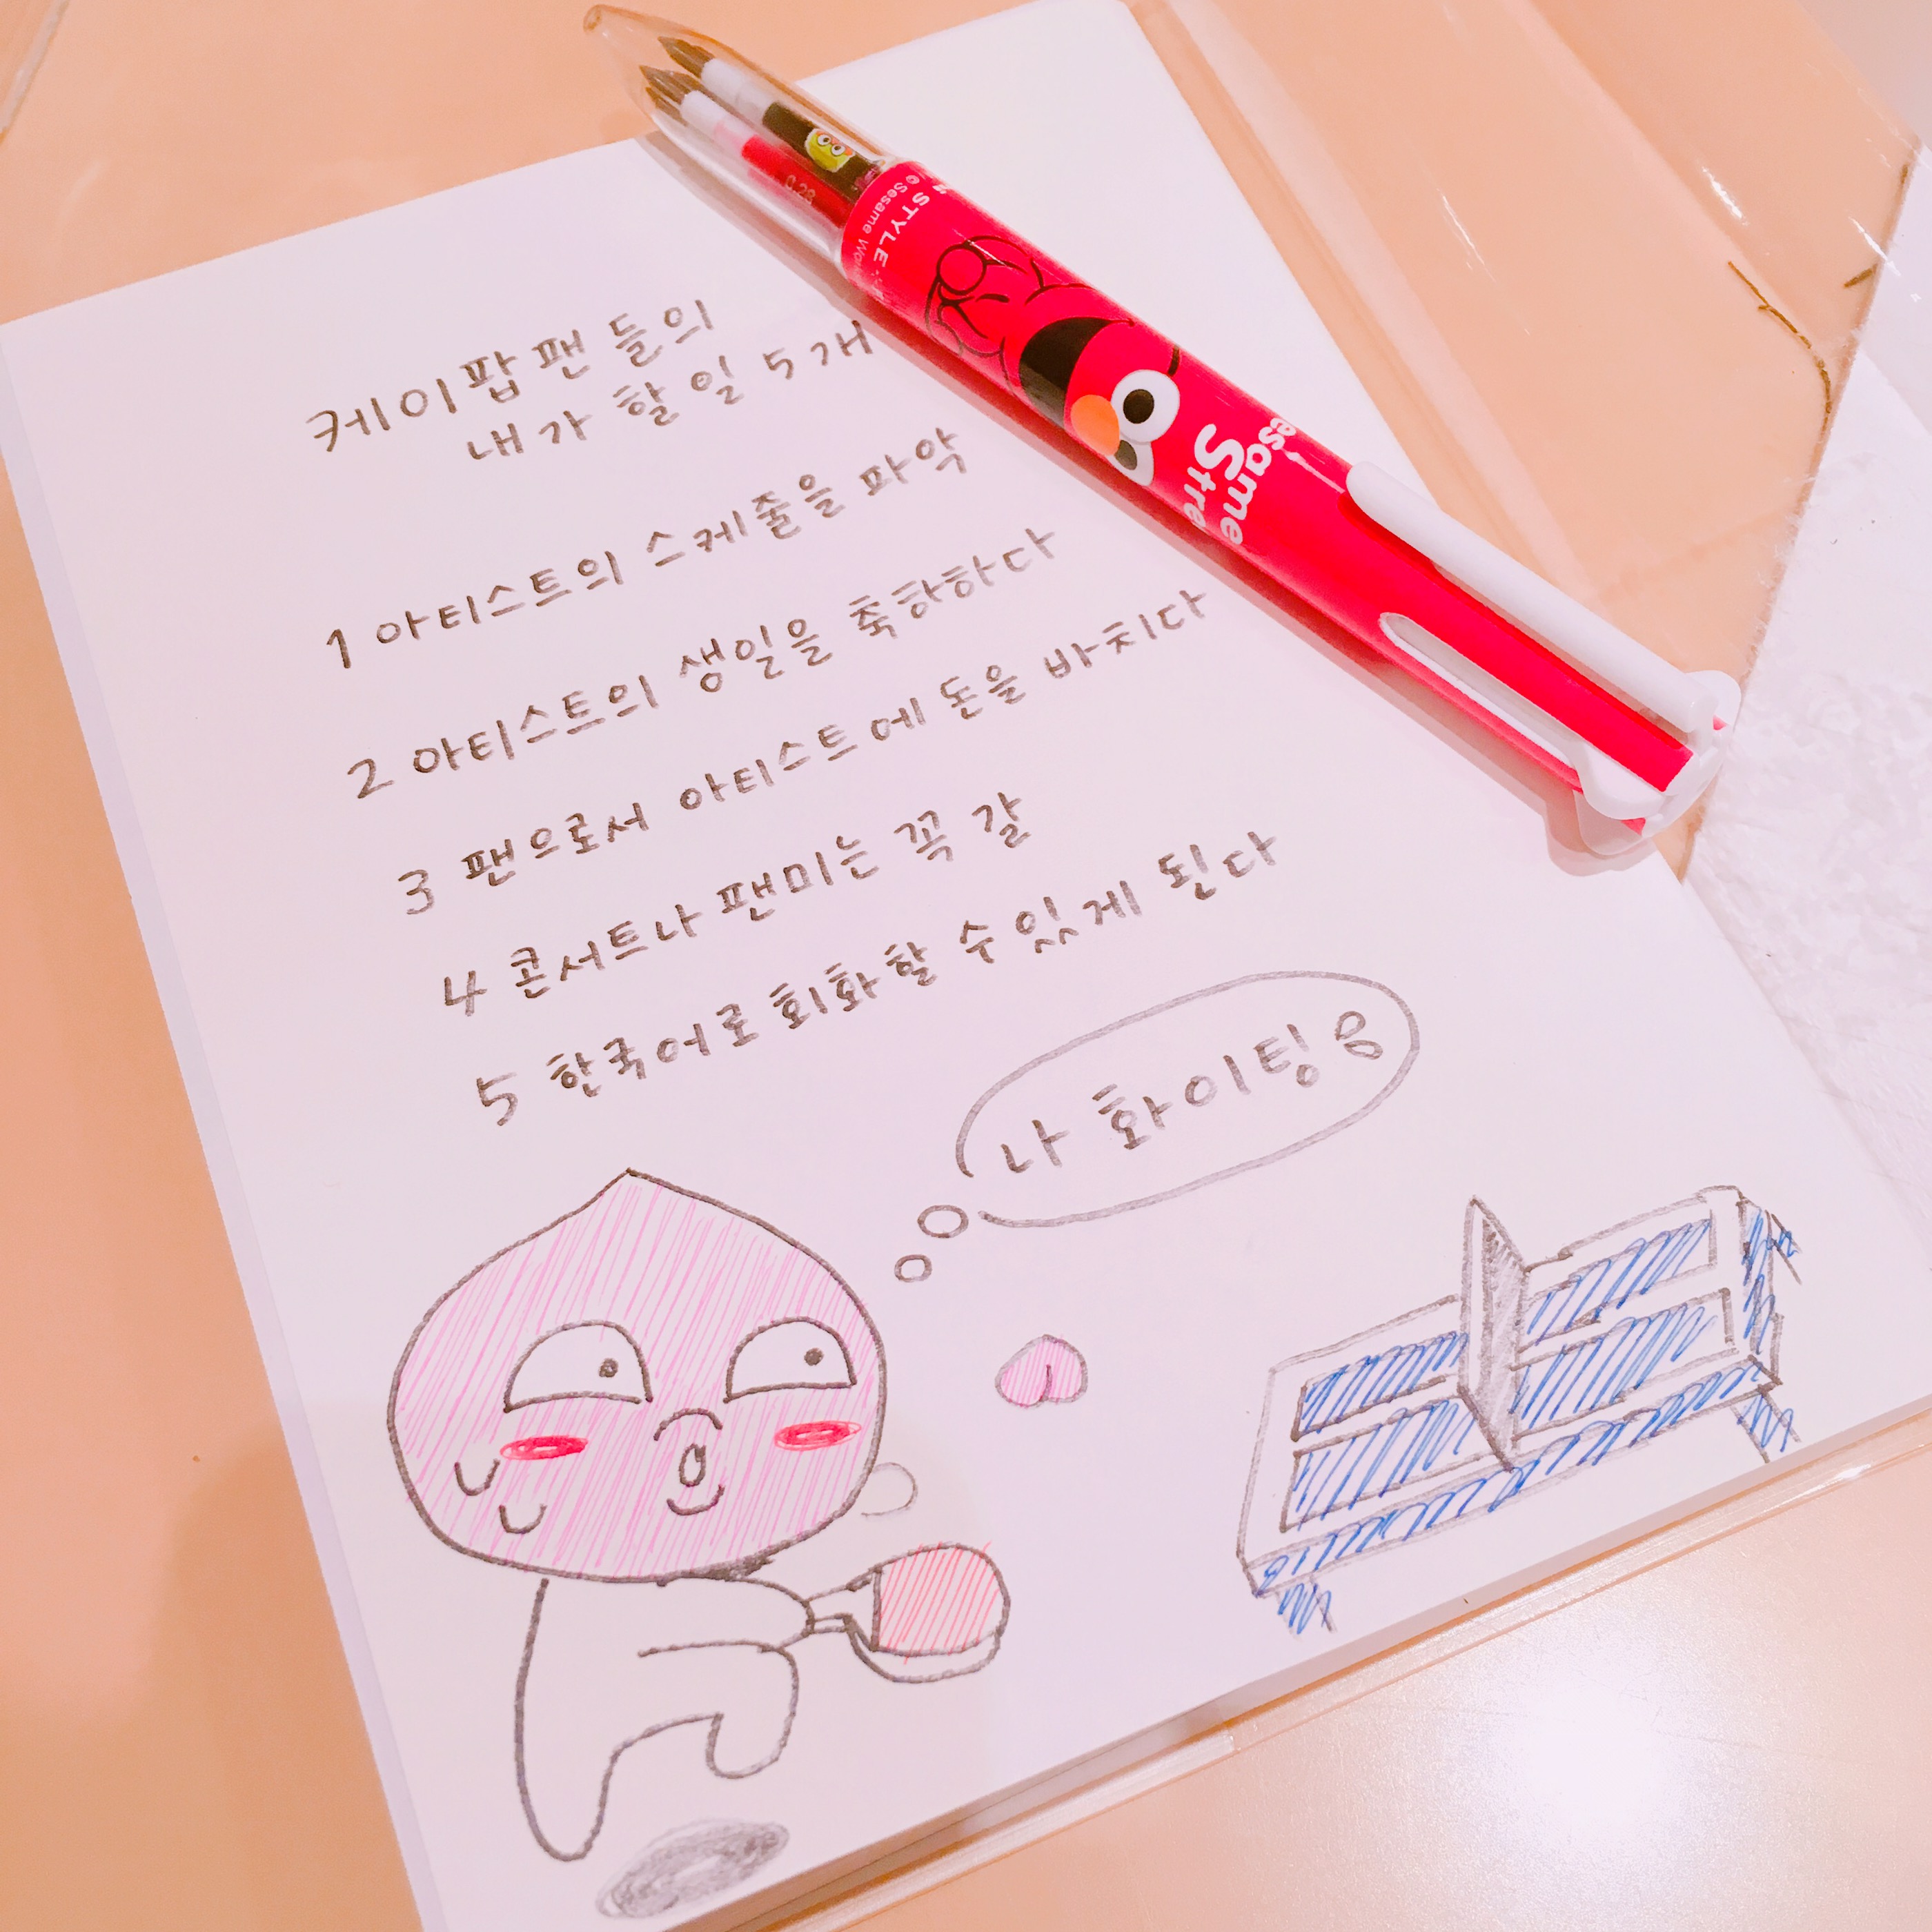 케이팝팬들의
내가 할 일 5개
1 아티스트의 스케줄을 파악
2 아티스트의 생일을 축하하다
3 팬으로서 아티스트에 돈을 바치다
4 콘서트나 팬미는 꼭 갈
5 한국어로 회화할 수 있게 된다
나 화이팅
STYLE
© Sesame Wor
0.28
esame
Stre